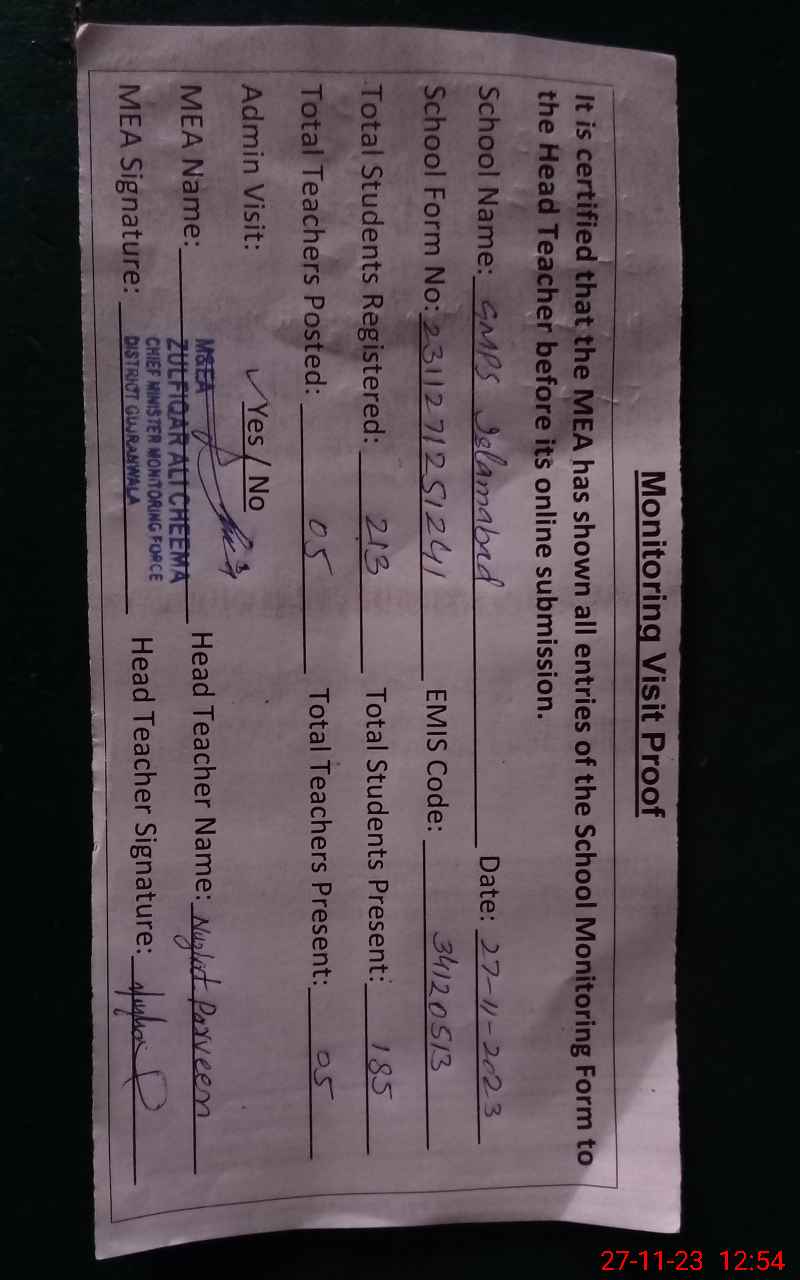 Monitoring Visit Proof
It is certified that the MEA has shown all entries of the School Monitoring Form to
the Head Teacher before its online submission.
School Name: GMPS Islamabad Date: 27-11-2023
School Form No: 2311271251241 EMIS Code: 34120513
Total Students Registered: 213 Total Students Present: 185
Total Teachers Posted: 05 Total Teachers Present: 05
Admin Visit: ✓Yes / No
MEA Name: Head Teacher Name: Nuzhat Parveen
MEA Signature: Head Teacher Signature:
M&EA
ZULFIQAR ALI CHEEMA
CHIEF MINISTER MONITORING FORCE
DISTRICT GUJRANWALA
27-11-23 12:54